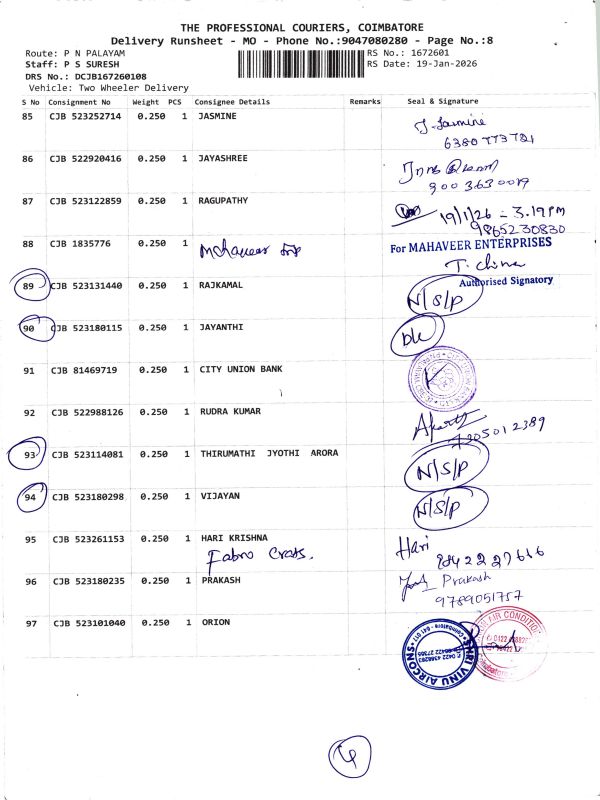 THE PROFESSIONAL COURIERS, COIMBATORE
Delivery Runsheet - MO - Phone No.:9047080280 - Page No.:8
Route: P N PALAYAM RS No.: 1672601
Staff: P S SURESH RS Date: 19-Jan-2026
DRS No.: DCJB167260108
Vehicle: Two Wheeler Delivery
S No Consignment No Weight PCS Consignee Details Remarks Seal & Signature
85 CJB 523252714 0.250 1 JASMINE J. Jasmine
6380 773 721
86 CJB 522920416 0.250 1 JAYASHREE
900 3630019
87 CJB 523122859 0.250 1 RAGUPATHY 19/1/26 - 3.19 PM
9865230830
88 CJB 1835776 0.250 1 Mahaveer For MAHAVEER ENTERPRISES
T. China
Authorised Signatory
89 CJB 523131440 0.250 1 RAJKAMAL N/S/P
90 CJB 523180115 0.250 1 JAYANTHI DL
91 CJB 81469719 0.250 1 CITY UNION BANK
92 CJB 522988126 0.250 1 RUDRA KUMAR
05012389
93 CJB 523114081 0.250 1 THIRUMATHI JYOTHI ARORA N/S/P
94 CJB 523180298 0.250 1 VIJAYAN N/S/P
95 CJB 523261153 0.250 1 HARI KRISHNA Hari
Fabro Crats.
96 CJB 523180235 0.250 1 PRAKASH Prakash
9789051757
97 CJB 523101040 0.250 1 ORION SHRI VINU AIRCONS